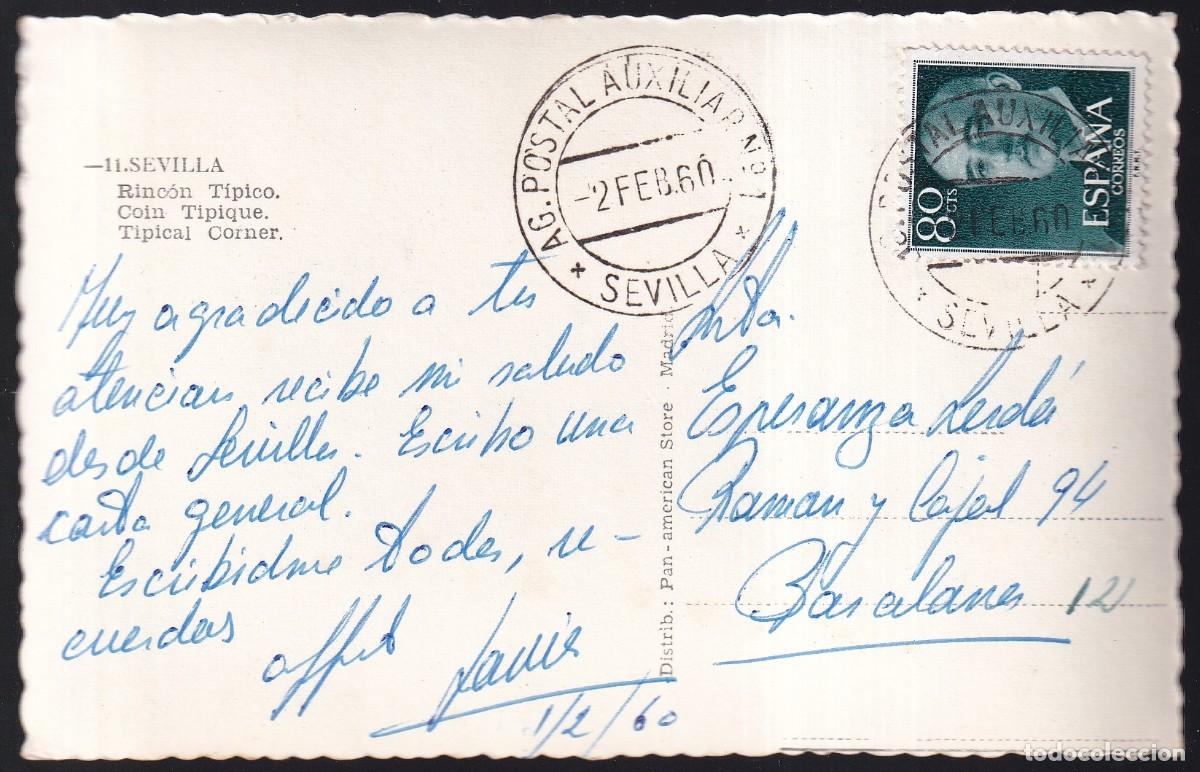 —11.SEVILLA
Rincón Típico.
Coin Tipique.
Tipical Corner.
Muy agradecido a tus
atencions, recibe mi saludo
desde Sevilla. Escribo una
carta general.
Escribidme todos, re-
cuerdos
Javier
1/2/60
AG. POSTAL AUXILIAR Nº 1
-2 FEB.60.
* SEVILLA *
Distrib.: Pan-american Store · Madrid
80 CTS
ESPAÑA
CORREOS
F.N.M.T.
POSTAL AUXILI
FEB.60
* SEVILLA *
Srta.
Esperanza Cerdá
Ramon y Cajal 94
Barcelona 12
todocoleccion